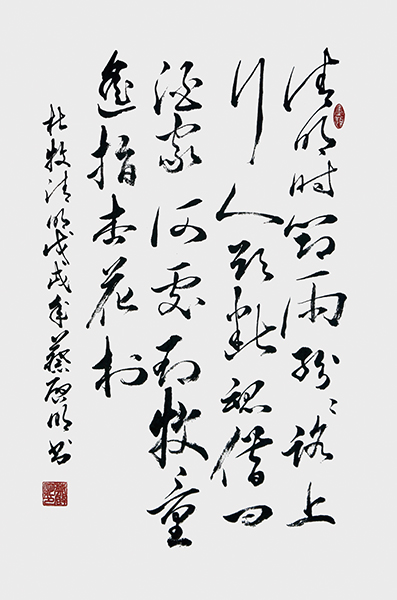 清明时节雨纷纷路上
行人欲断魂借问
酒家何处有牧童
遥指杏花村
杜牧清明戊戌年蔡启明书